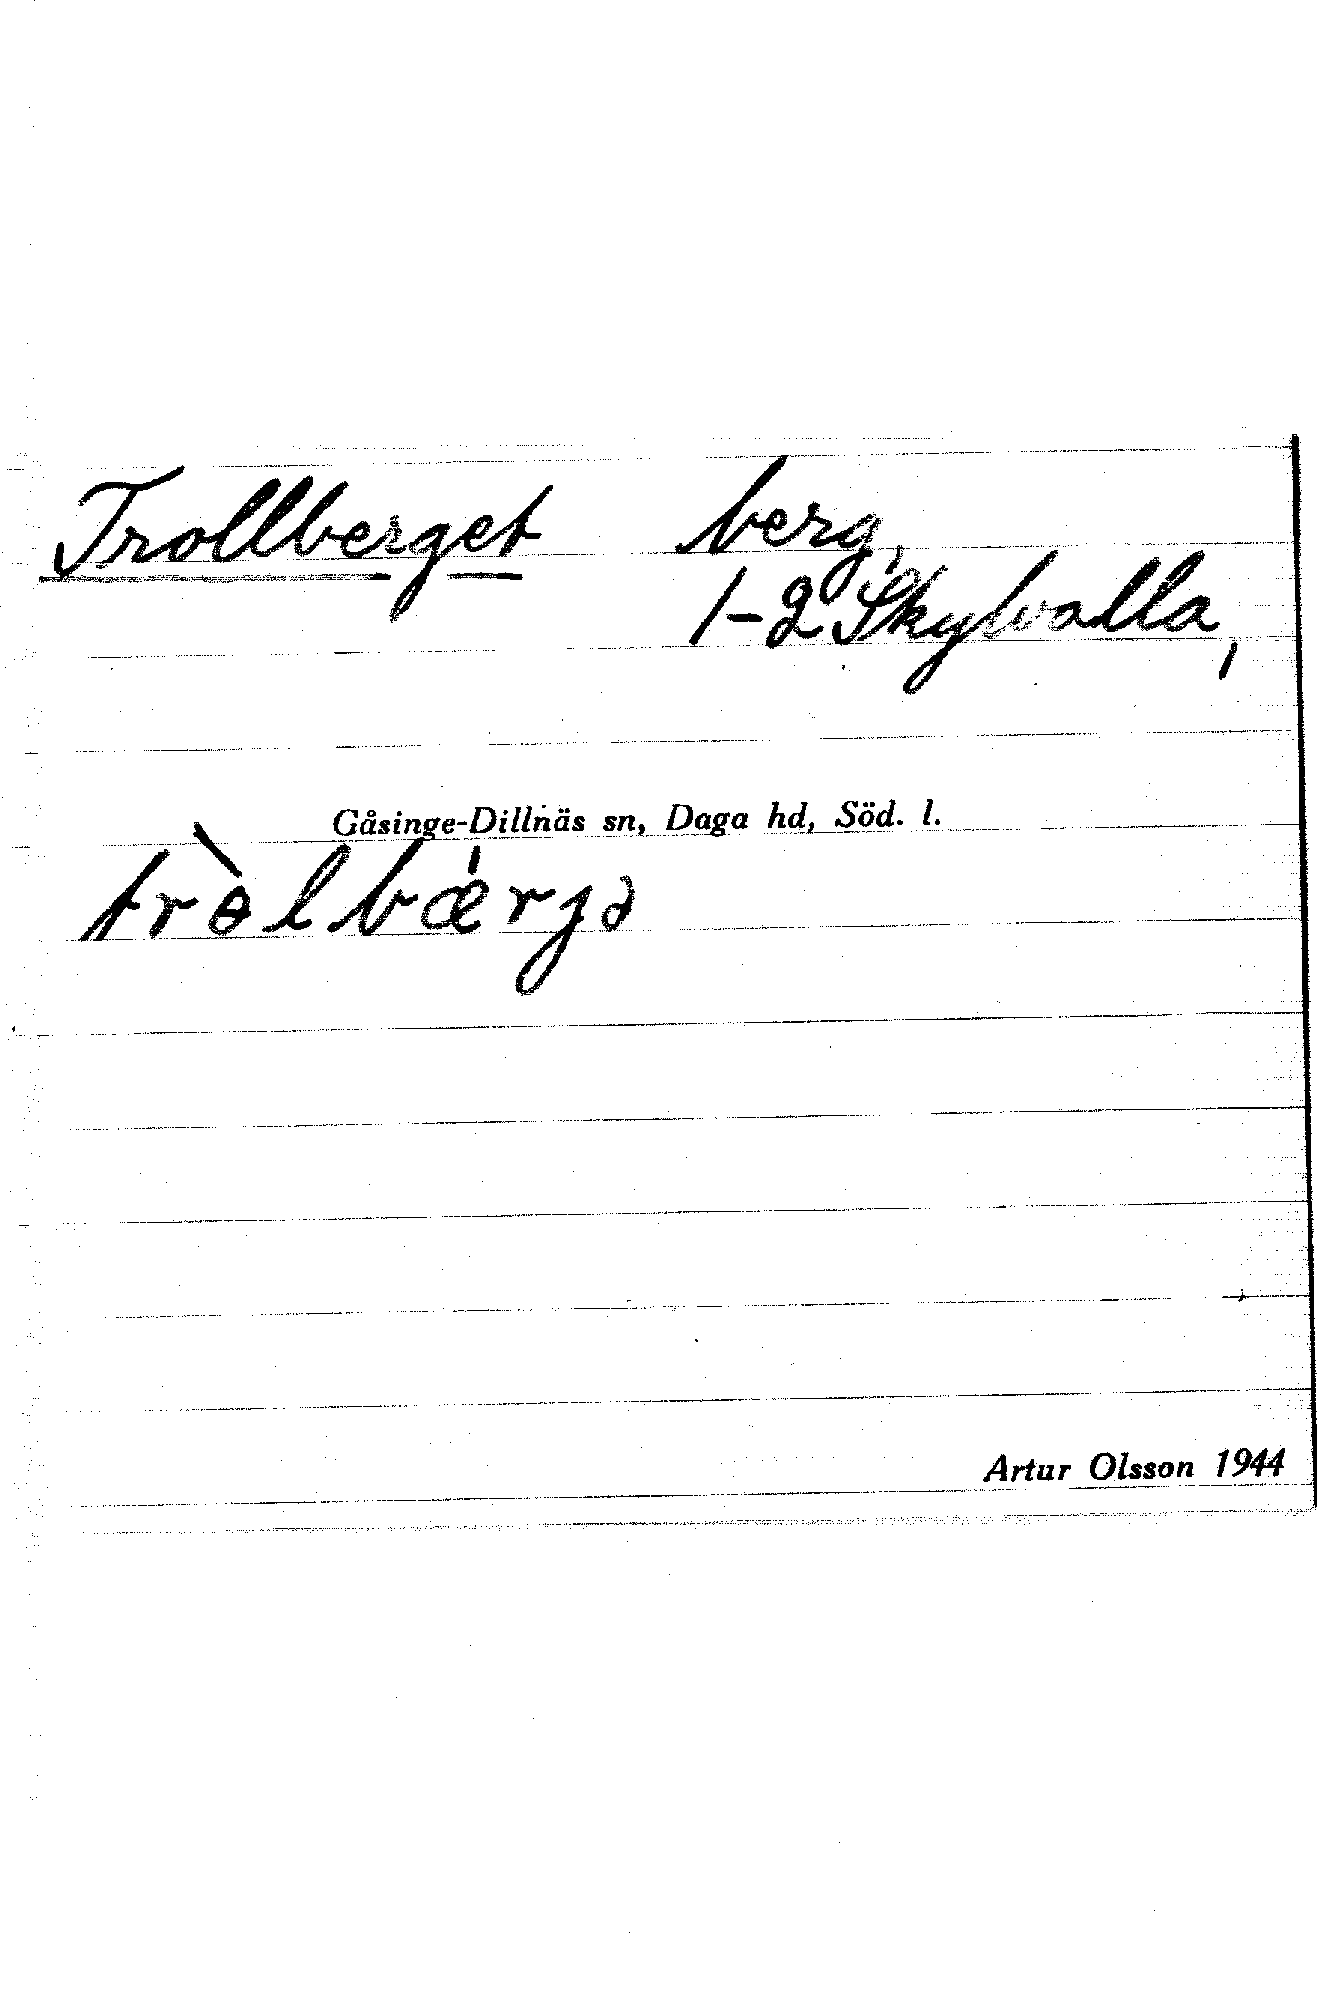 Trollberget berg,
1-2 Skylvalla,
Gåsinge-Dillnäs sn, Daga hd, Söd. l.
trɵ̀lbǽrjə
Artur Olsson 1944